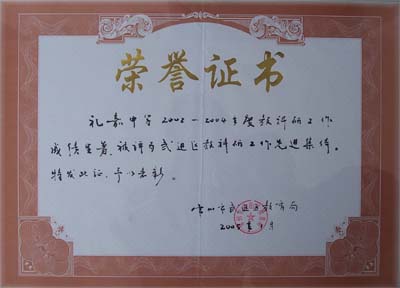 荣誉证书
礼嘉中学2003-2004年度教科研工作
成绩显著,被评为武进区教科研工作先进集体。
特发此证,予以表彰。
常州市武进区教育局
2005年 月